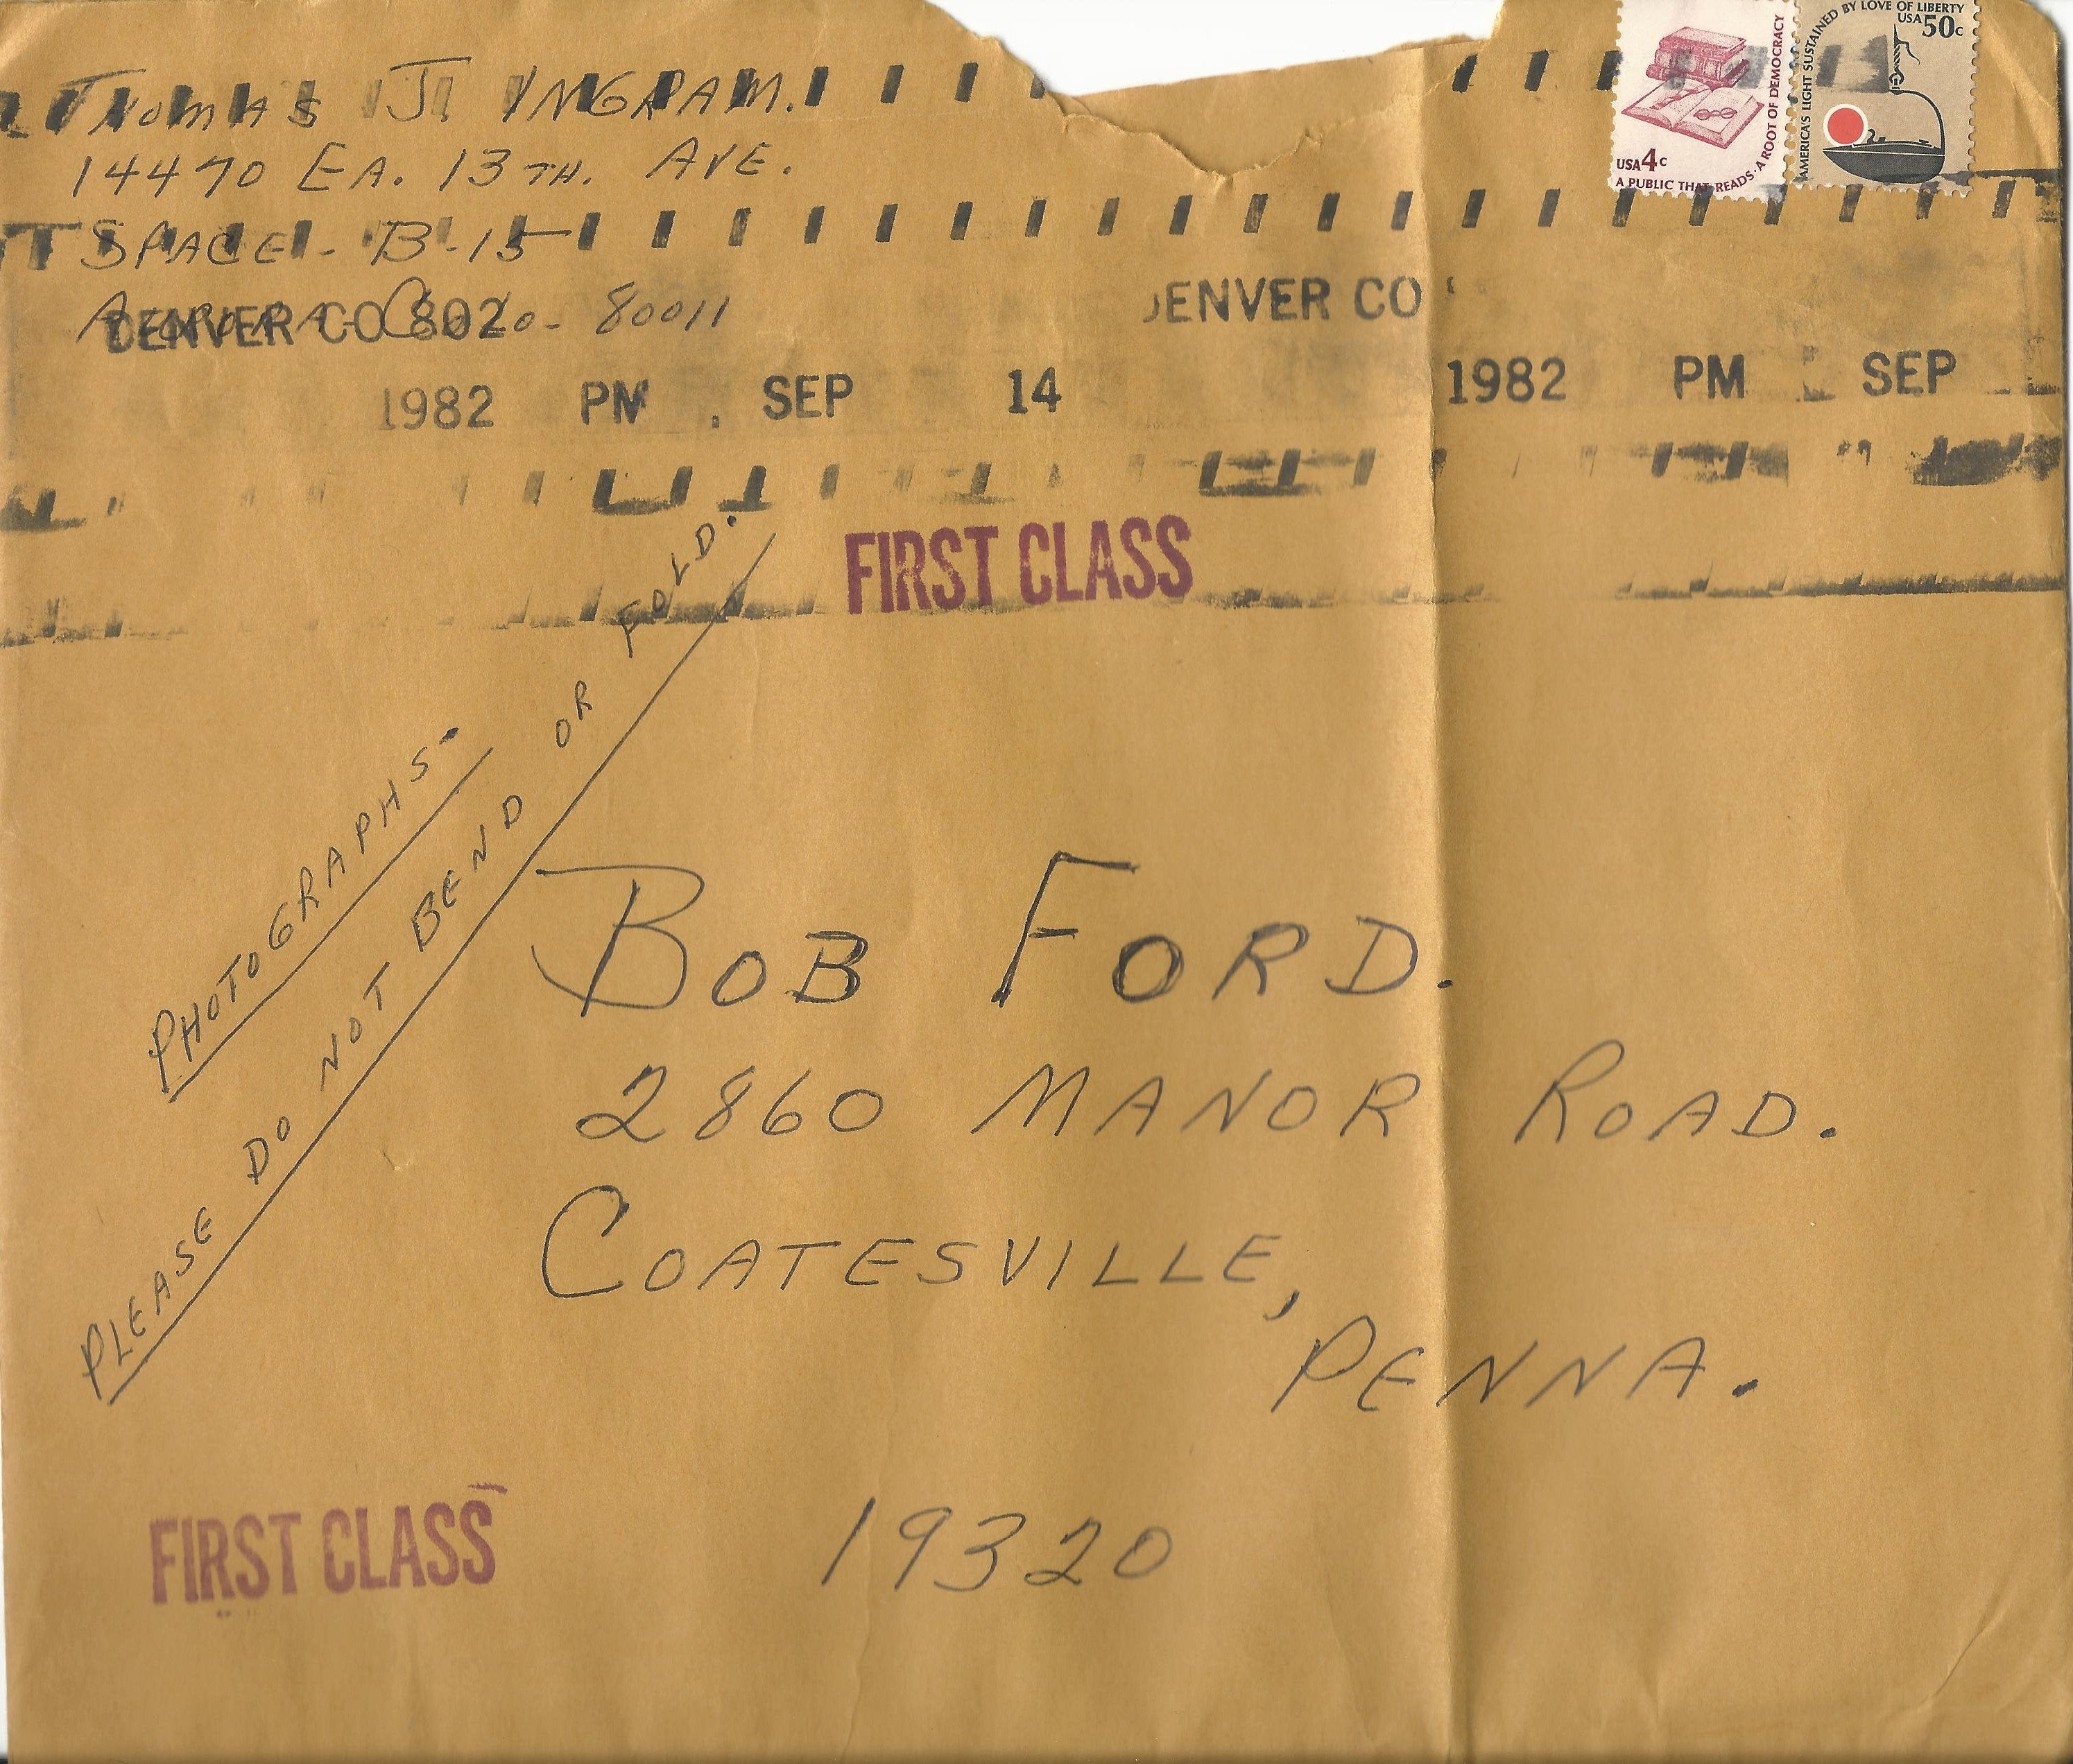 THOMAS J. INGRAM.
14470 EA. 13TH. AVE.
SPACE - B-15
AURORA - COLO - 80011
DENVER CO 802
1982 PM SEP 14
DENVER CO
1982 PM SEP
USA 4c
A PUBLIC THAT READS · A ROOT OF DEMOCRACY
AMERICA'S LIGHT SUSTAINED BY LOVE OF LIBERTY
USA 50c
FIRST CLASS
PHOTOGRAPHS.
PLEASE DO NOT BEND OR FOLD.
BOB FORD.
2860 MANOR ROAD.
COATESVILLE,
PENNA.
19320
FIRST CLASS